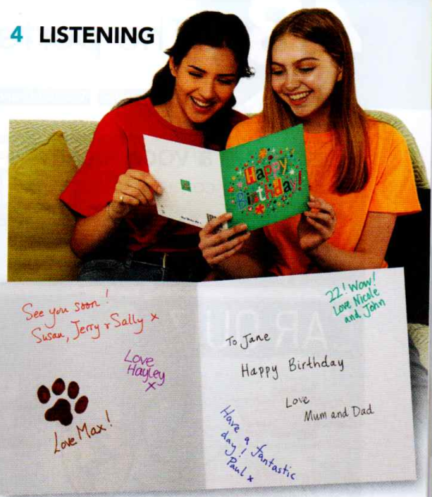 4 LISTENING
Happy
Birthday!
See you soon!
Susan, Jerry & Sally x
Love
Hayley
x
Love Max!
22! Wow!
Love Nicole
and John
To Jane
Happy Birthday
Love
Mum and Dad
Have a fantastic
day!
Paul x